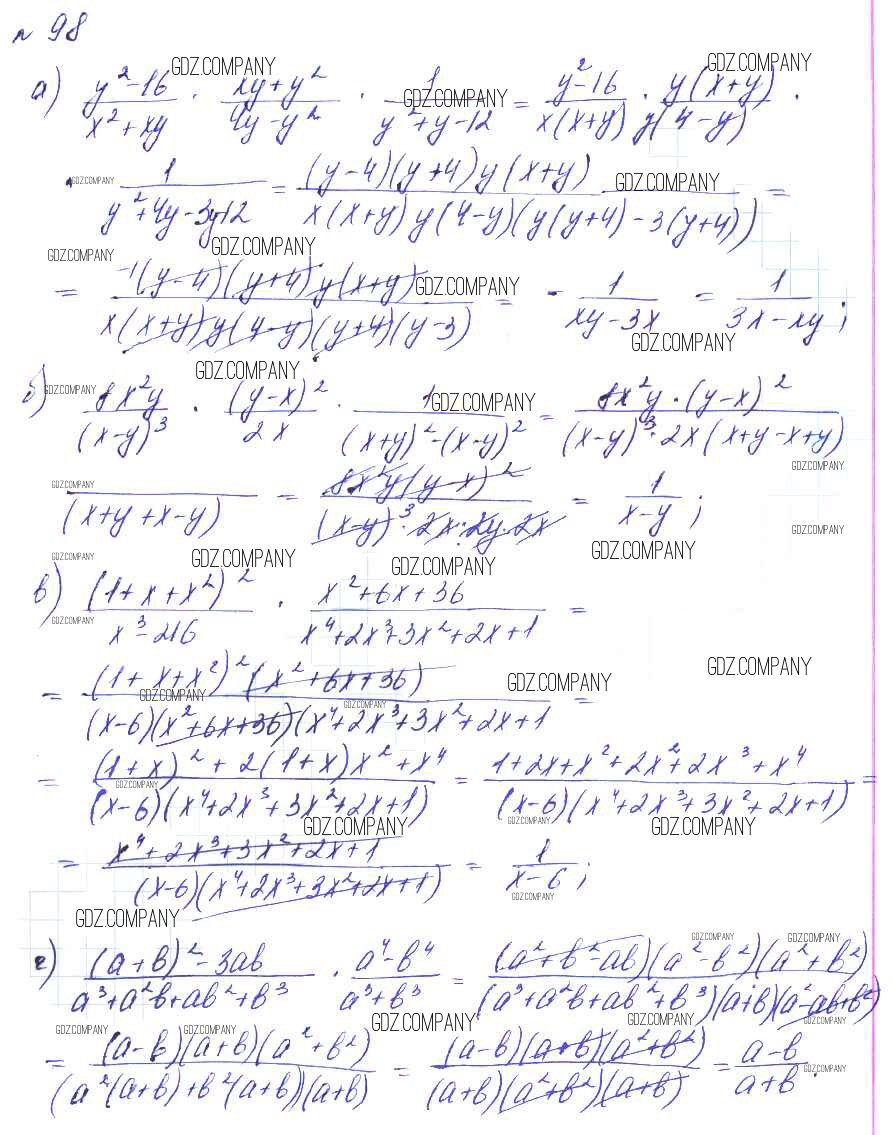 № 98
а) (y²-16)/(x²+xy) · (xy+y²)/(4y-y²) · 1/(y²+y-12) = (y²-16)/(x(x+y)) · y(x+y)/(y(4-y)) ·
· 1/(y²+4y-3y-12) = (y-4)(y+4)y(x+y)/(x(x+y)y(4-y)(y(y+4)-3(y+4))) =
= -1(y-4)(y+4)y(x+y)/(x(x+y)y(4-y)(y+4)(y-3)) = - 1/(xy-3x) = 1/(3x-xy);
б) 8x²y/(x-y)³ · (y-x)²/2x · 1/((x+y)²-(x-y)²) = 8x²y·(y-x)²/((x-y)³·2x(x+y-x+y)
/(x+y+x-y) = 8x²y(y-x)²/((x-y)³·2x·2y·2x) = 1/(x-y);
в) (1+x+x²)²/(x³-216) · (x²+6x+36)/(x⁴+2x³+3x²+2x+1) =
= (1+x+x²)²(x²+6x+36)/((x-6)(x²+6x+36)(x⁴+2x³+3x²+2x+1) =
= ((1+x)²+2(1+x)x²+x⁴)/((x-6)(x⁴+2x³+3x²+2x+1)) = (1+2x+x²+2x²+2x³+x⁴)/((x-6)(x⁴+2x³+3x²+2x+1)) =
= (x⁴+2x³+3x²+2x+1)/((x-6)(x⁴+2x³+3x²+2x+1)) = 1/(x-6);
г) ((a+b)²-3ab)/(a³+a²b+ab²+b³) · (a⁴-b⁴)/(a³+b³) = (a²+b²-ab)(a²-b²)(a²+b²)/((a³+a²b+ab²+b³)(a+b)(a²-ab+b²))
= (a-b)(a+b)(a²+b²)/((a²(a+b)+b²(a+b))(a+b)) = (a-b)(a+b)(a²+b²)/((a+b)(a²+b²)(a+b)) = (a-b)/(a+b).
GDZ.COMPANY